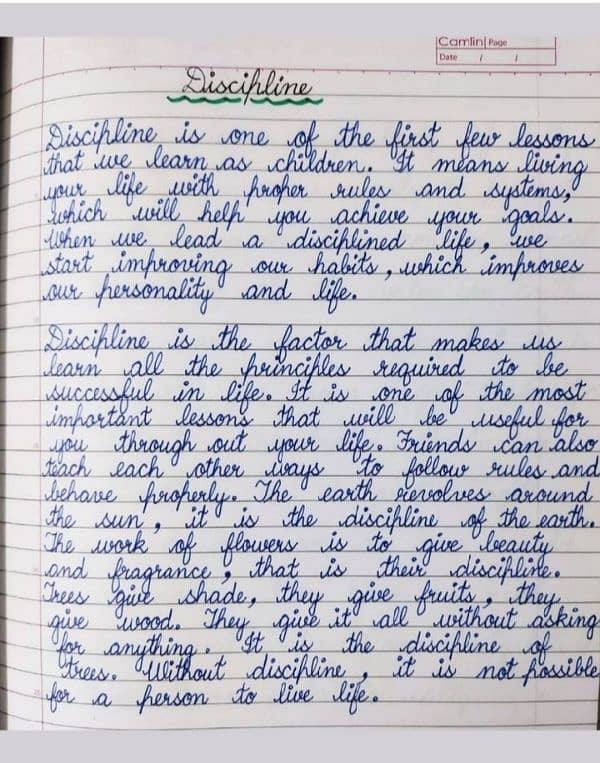 Camlin Page
Date / /
Discipline
Discipline is one of the first few lessons
that we learn as children. It means living
your life with proper rules and systems,
which will help you achieve your goals.
When we lead a disciplined life, we
start improving our habits, which improves
our personality and life.
Discipline is the factor that makes us
learn all the principles required to be
successful in life. It is one of the most
important lessons that will be useful for
you through out your life. Friends can also
teach each other ways to follow rules and
behave properly. The earth revolves around
the sun, it is the discipline of the earth.
The work of flowers is to give beauty
and fragrance, that is their discipline.
Trees give shade, they give fruits, they
give wood. They give it all without asking
for anything. It is the discipline of
trees. Without discipline, it is not possible
for a person to live life.